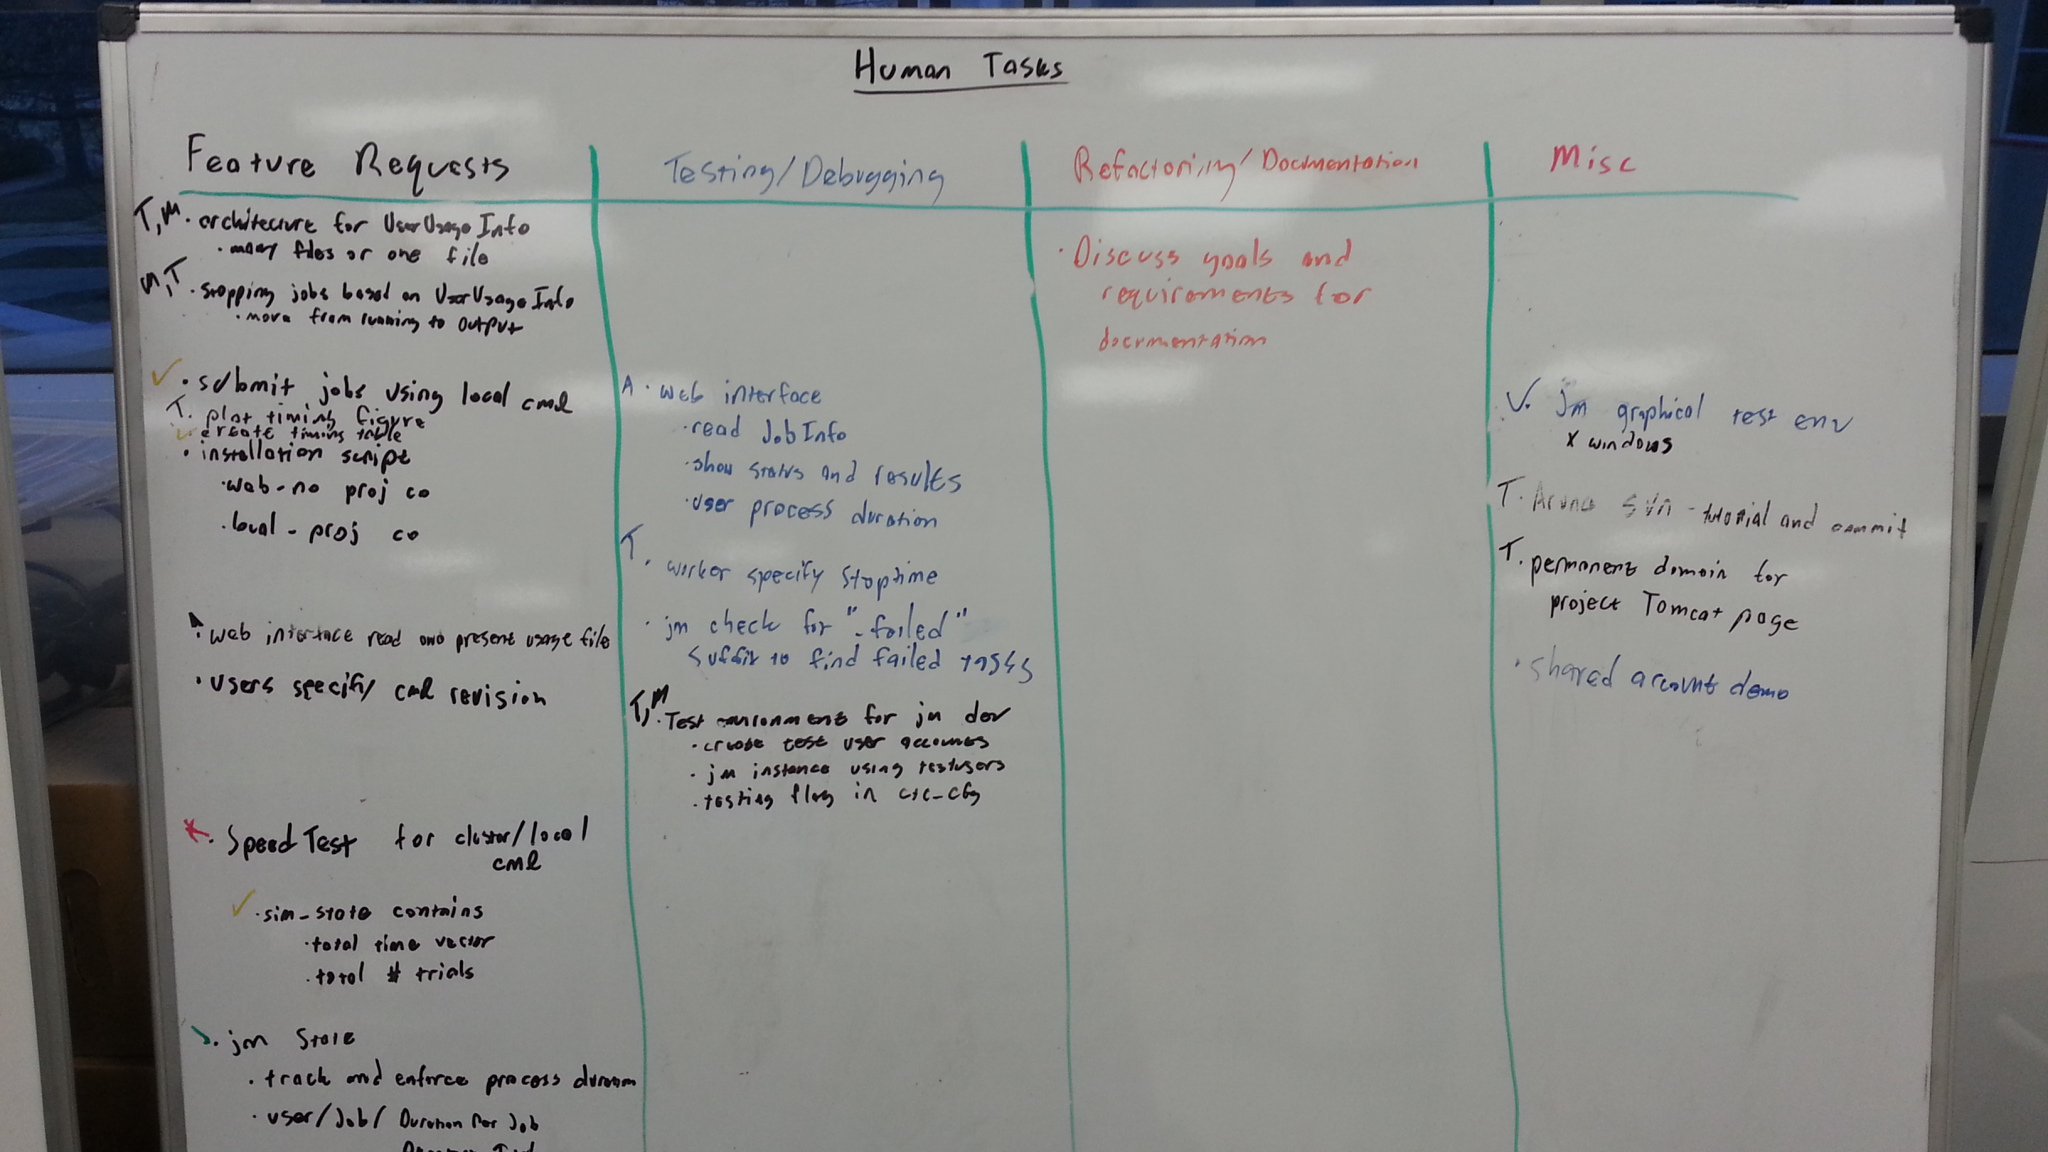 Human Tasks
Feature Requests
T,M · architecture for UserUsageInfo
· many files or one file
M,T · stopping jobs based on UserUsageInfo
· move from running to output
✓ · submit jobs using local cml
T · plot timing figure
✓ · create timing table
· installation script
· web-no proj co
· local-proj co
· web interface read and present usage file
· users specify cml revision
* · SpeedTest for cluster/local
cml
✓ · sim-state contains
· total time vector
· total # trials
· jm State
· track and enforce process duration
· user/Job/ Duration Per Job
Testing/Debugging
A · web interface
· read JobInfo
· show status and results
· user process duration
T · worker specify stoptime
· jm check for "_failed"
suffix to find failed tasks
T,M · Test environment for jm dev
· create test user accounts
· jm instance using testusers
· testing flag in
Refactoring/Documentation
· Discuss goals and
requirements for
documentation
Misc
✓ · jm graphical test env
x windows
T · SVN - tutorial and commit
T · permanent domain for
project Tomcat page
· shared account demo